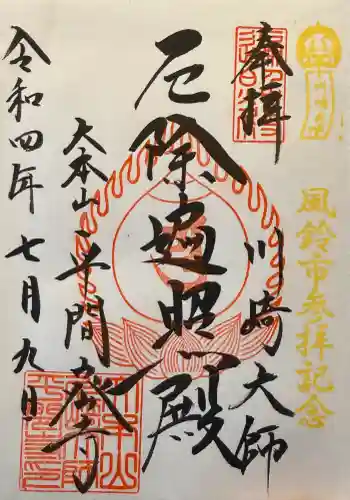 風鈴市参拝記念
奉拝
川崎大師
厄除遍照殿
大本山
平間寺
令和四年七月九日